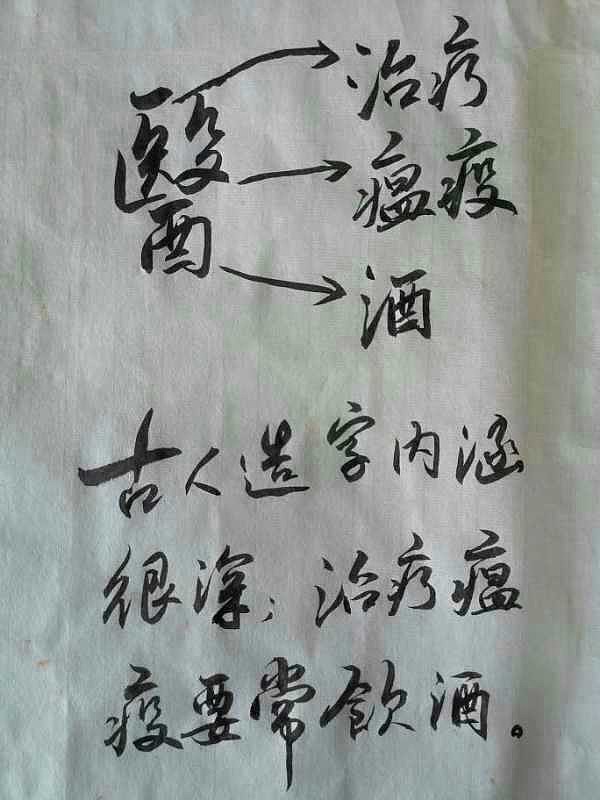 治疗
醫
瘟疫
酒
古人造字内涵
很深；治疗瘟
疫要常飲酒。